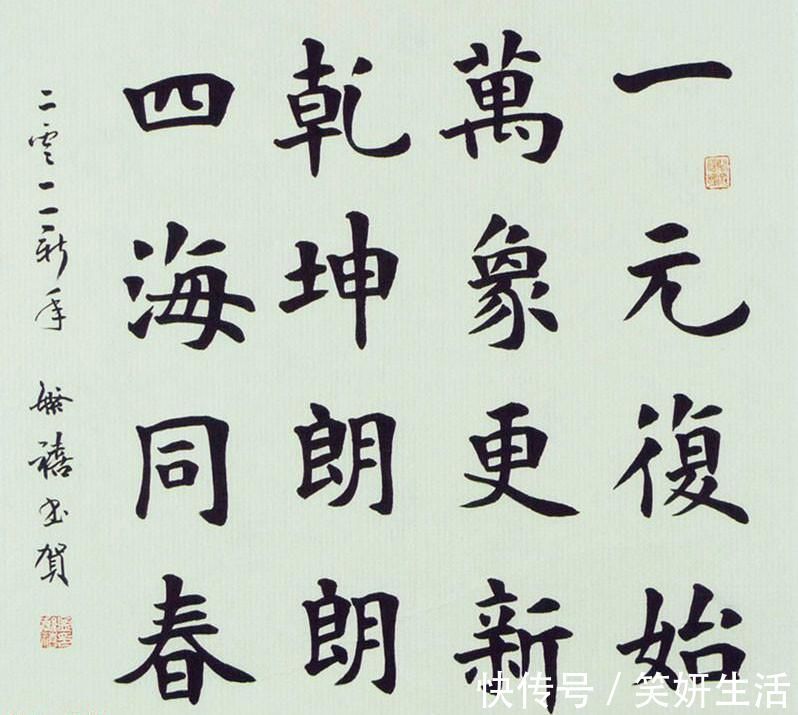 一元復始
萬象更新
乾坤朗朗
四海同春
二零一一新年 繁禧書賀
快传号 / 笑妍生活